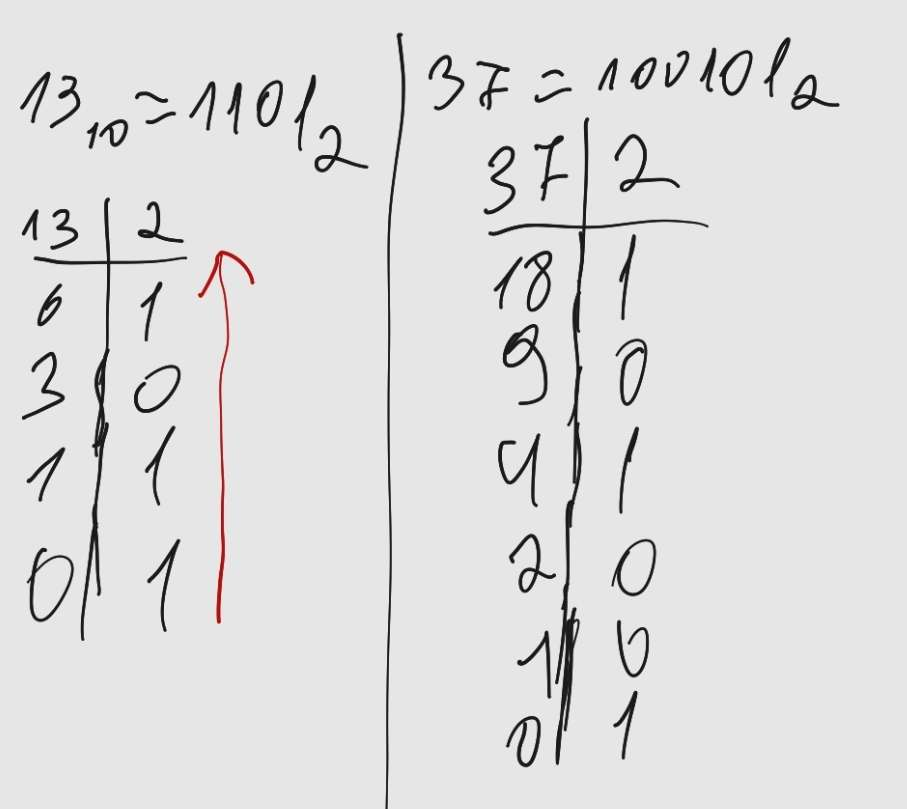 13₁₀ = 1101₂
13 | 2
6 | 1
3 | 0
1 | 1
0 | 1
37 = 100101₂
37 | 2
18 | 1
9 | 0
4 | 1
2 | 0
1 | 0
0 | 1